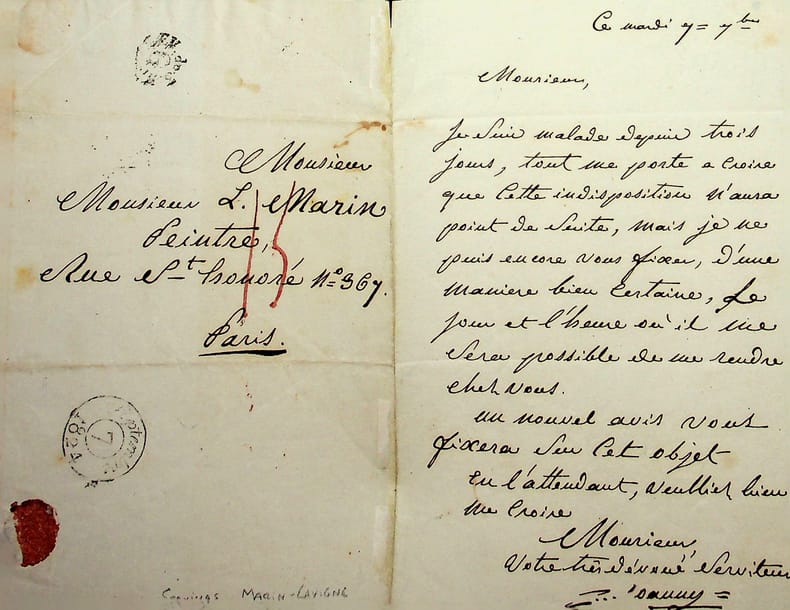 Monsieur
Monsieur L. Marin
Peintre,
Rue St. honoré No. 367.
Paris.
15
Septembre
7
1824
MARIN-LAVIGNE
Ce mardi 7= 7bre
Monsieur,
Je suis malade depuis trois
jours, tout me porte a croire
que cette indisposition n'aura
point de suite, mais je ne
puis encore vous fixer, d'une
maniere bien certaine, Le
jour et l'heure où il me
sera possible de me rendre
chez vous.
un nouvel avis vous
fixera sur cet objet
en l'attendant, veuilliez bien
me croire
Monsieur
Votre très dévoué Serviteur
Joanny =